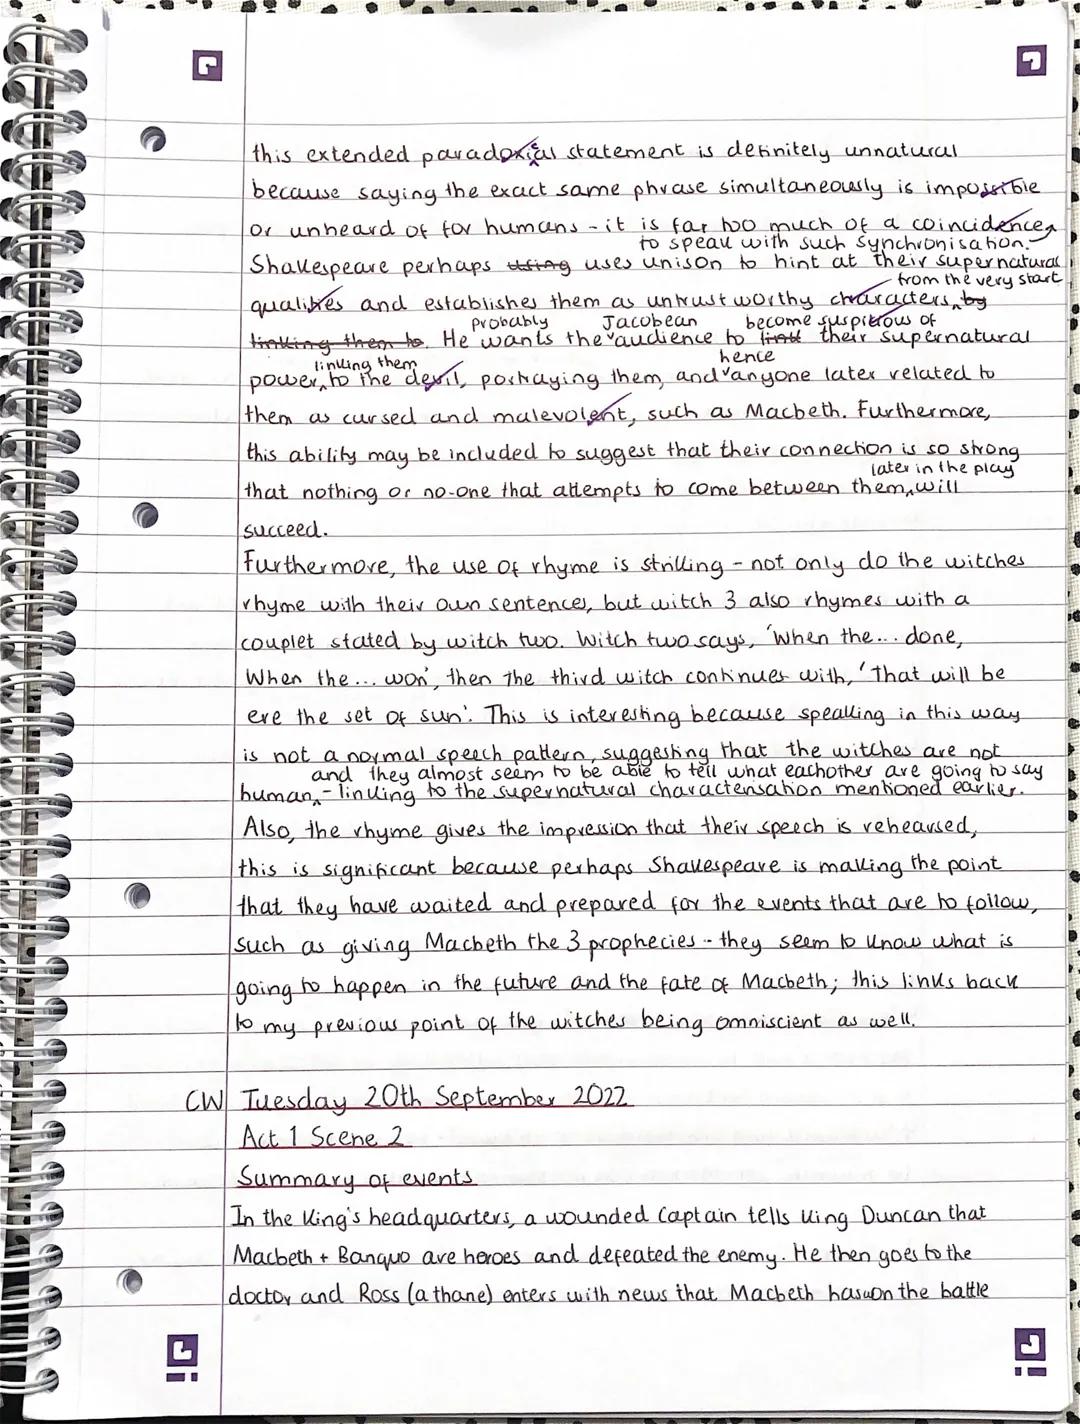 this extended paradoxical statement is definitely unnatural
because saying the exact same phrase simultaneously is impossible
or unheard of for humans - it is far too much of a coincidence
to speak with such synchronisation.
Shakespeare perhaps using uses unison to hint at their supernatural
from the very start
qualities and establishes them as untrustworthy characters, by
probably Jacobean become suspicious of
linking them to. He wants the audience to link their supernatural
linking them hence
power to the devil, portraying them, and anyone later related to
them as cursed and malevolent, such as Macbeth. Furthermore,
this ability may be included to suggest that their connection is so strong
later in the play
that nothing or no-one that attempts to come between them, will
succeed.
Furthermore, the use of rhyme is striking - not only do the witches
rhyme with their own sentences, but witch 3 also rhymes with a
couplet stated by witch two. Witch two says, 'When the... done,
When the... won', then the third witch continues with, 'That will be
ere the set of sun'. This is interesting because speaking in this way
is not a normal speech pattern, suggesting that the witches are not
and they almost seem to be able to tell what eachother are going to say
human, - linking to the supernatural characterisation mentioned earlier.
Also, the rhyme gives the impression that their speech is rehearsed,
this is significant because perhaps Shakespeare is making the point
that they have waited and prepared for the events that are to follow,
such as giving Macbeth the 3 prophecies - they seem to know what is
going to happen in the future and the fate of Macbeth; this links back
to my previous point of the witches being omniscient as well.
CW Tuesday 20th September 2022
Act 1 Scene 2
Summary of events
In the King's headquarters, a wounded Captain tells King Duncan that
Macbeth + Banquo are heroes and defeated the enemy. He then goes to the
doctor and Ross (a thane) enters with news that Macbeth has won the battle